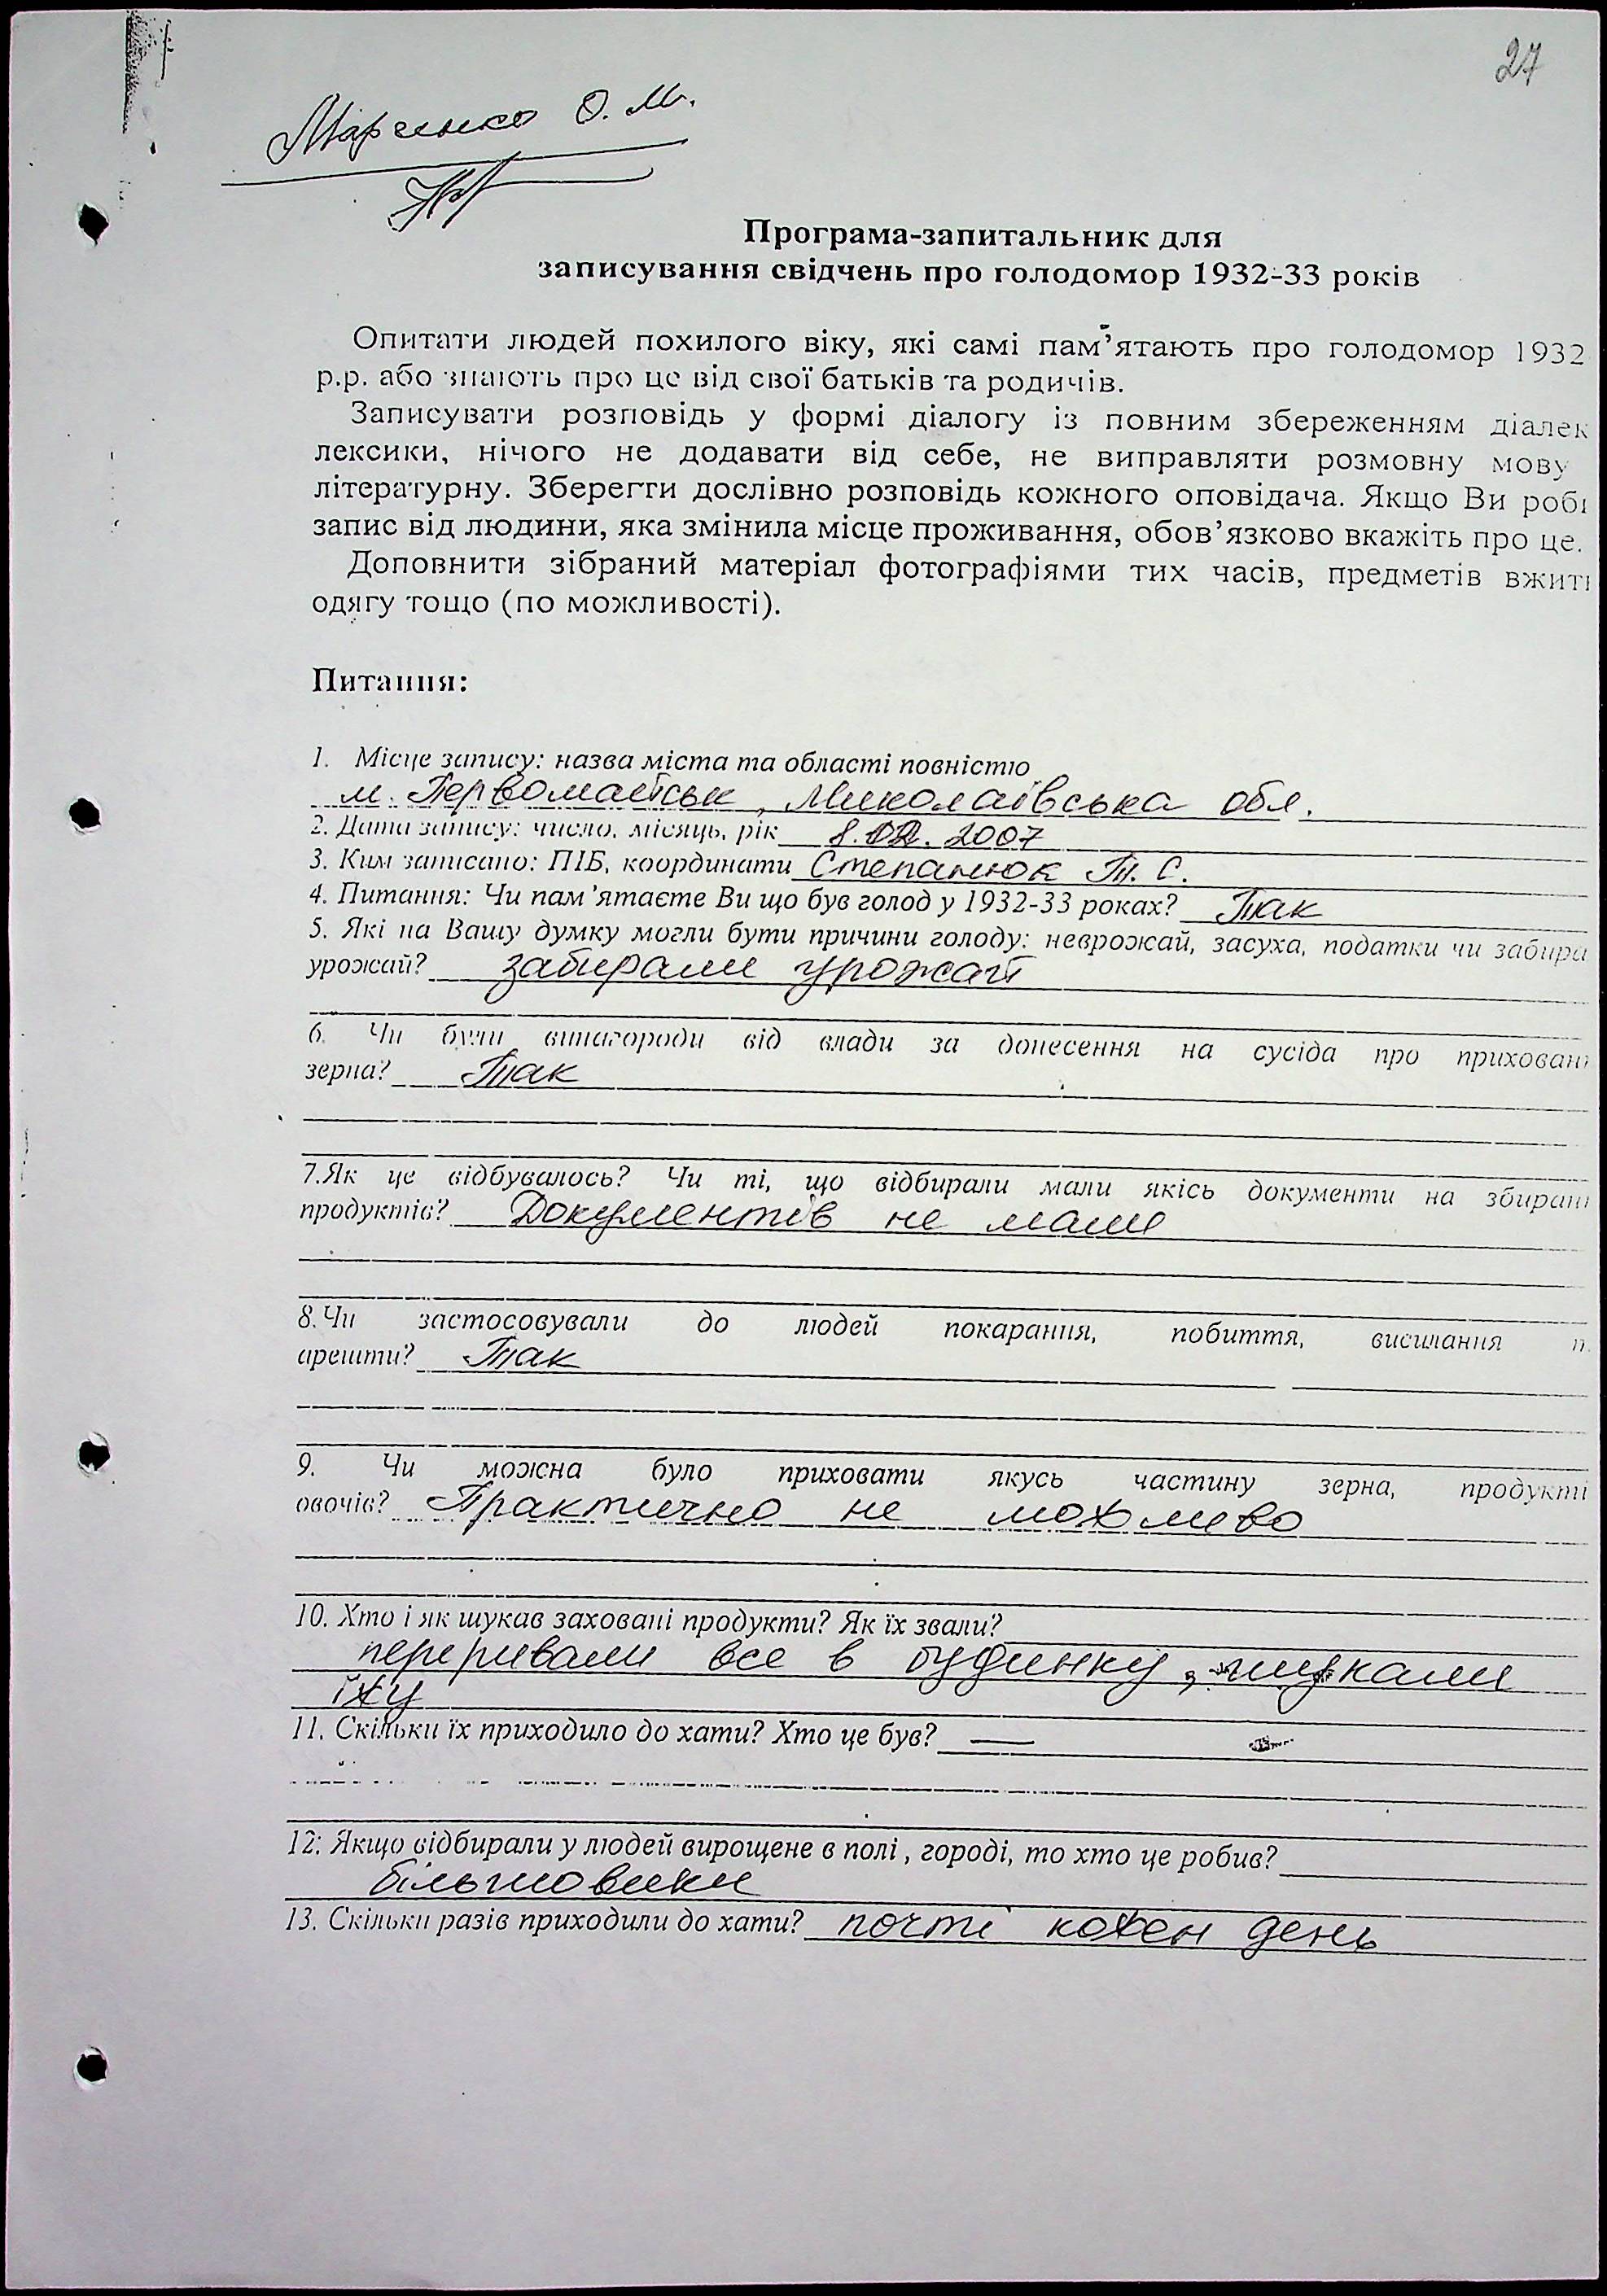 27
Марченко О. М.
Програма-запитальник для
записування свідчень про голодомор 1932-33 років
Опитати людей похилого віку, які самі пам’ятають про голодомор 1932
р.р. або знають про це від свої батьків та родичів.
Записувати розповідь у формі діалогу із повним збереженням діалек
лексики, нічого не додавати від себе, не виправляти розмовну мову
літературну. Зберегти дослівно розповідь кожного оповідача. Якщо Ви робі
запис від людини, яка змінила місце проживання, обов’язково вкажіть про це.
Доповнити зібраний матеріал фотографіями тих часів, предметів вжит
одягу тощо (по можливості).
Питання:
1. Місце запису: назва міста та області повністю
м. Первомайськ, Миколаївська обл.
2. Дата запису: число, місяць, рік 8.02.2007
3. Ким записано: ПІБ, координати Степанюк Т. С.
4. Питання: Чи пам’ятаєте Ви що був голод у 1932-33 роках? Так
5. Які на Вашу думку могли бути причини голоду: неврожай, засуха, податки чи забира
урожай? забирали урожай
6. Чи були винагороди від влади за донесення на сусіда про приховані
зерна? Так
7.Як це відбувалось? Чи ті, що відбирали мали якісь документи на збиран
продуктів? Документів не мали
8.Чи застосовували до людей покарання, побиття, висилання
арешти? Так
9. Чи можна було приховати якусь частину зерна, продукті
овочів? Практично не можливо
10. Хто і як шукав заховані продукти? Як їх звали?
переривали все в будинку, шукали
їжу
11. Скільки їх приходило до хати? Хто це був? —
12. Якщо відбирали у людей вирощене в полі , городі, то хто це робив?
більшовики
13. Скільки разів приходили до хати? почті кожен день